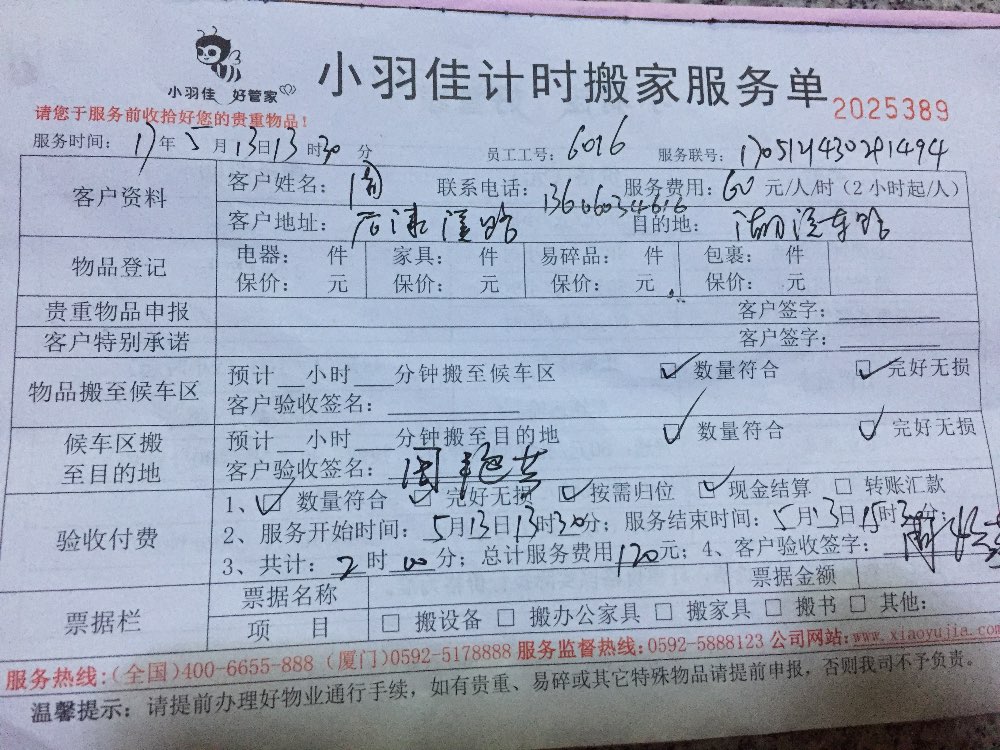 小羽佳 好管家
小羽佳计时搬家服务单
2025389
请您于服务前收拾好您的贵重物品!
服务时间: 17年5月13日13时30分 员工工号: 6016 服务联号: 170512143021494
客户资料
客户姓名: 周 联系电话: 13606034616 服务费用: 60元/人/时(2小时起/人)
客户地址: 目的地:
物品登记
电器: 件 家具: 件 易碎品: 件 包裹: 件
保价: 元 保价: 元 保价: 元 保价: 元
贵重物品申报 客户签字:
客户特别承诺 客户签字:
物品搬至候车区
预计__小时___分钟搬至候车区 ☑ 数量符合 ☑ 完好无损
客户验收签名:
候车区搬至目的地
预计__小时___分钟搬至目的地 ☑ 数量符合 ☑ 完好无损
客户验收签名: 周
验收付费
1、☑ 数量符合 ☑ 完好无损 ☑ 按需归位 ☑ 现金结算 □ 转账汇款
2、服务开始时间: 5月13日13时30分; 服务结束时间: 5月13日15时30分;
3、共计: 2时00分; 总计服务费用120元; 4、客户验收签字:
票据栏
票据名称 票据金额
项 目 □ 搬设备 □ 搬办公家具 □ 搬家具 □ 搬书 □ 其他:
服务热线:(全国)400-6655-888 (厦门)0592-5178888 服务监督热线:0592-5888123 公司网站:www.xiaoyujia.com
温馨提示: 请提前办理好物业通行手续,如有贵重、易碎或其它特殊物品请提前申报,否则我司不予负责。